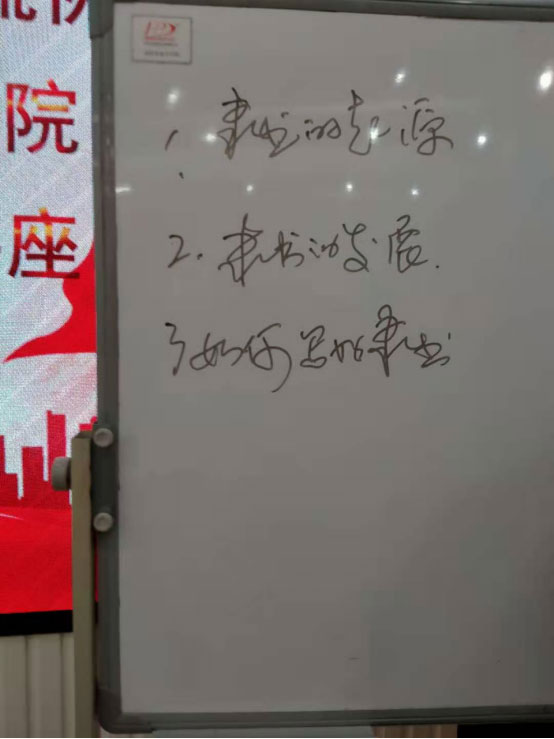 院
座
1. 隶书的起源
2. 隶书的发展.
3 如何写好隶书